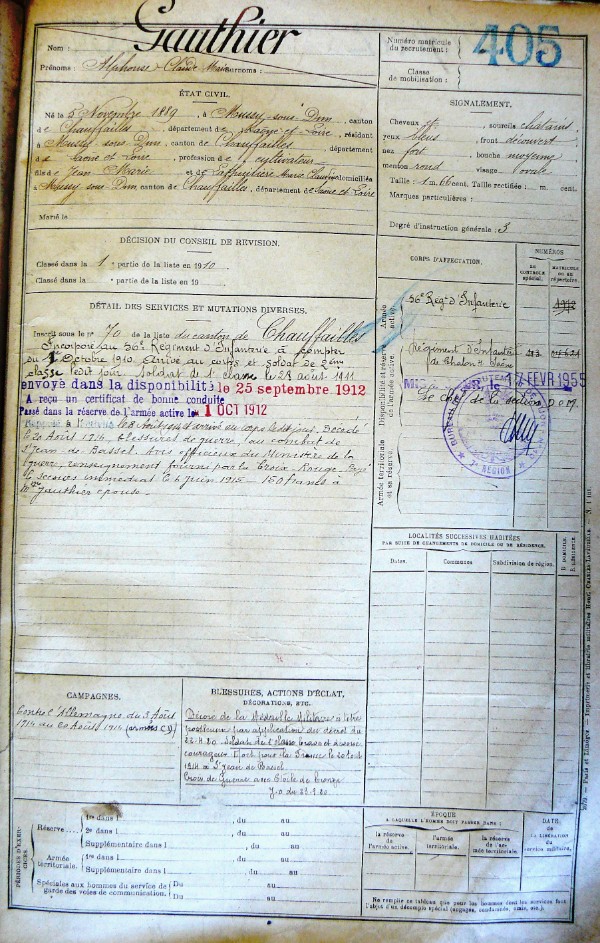 Gauthier
Nom :
Prénoms : Alphonse Claude Marie surnoms :
Numéro matricule du recrutement : 405
Classe de mobilisation :
ÉTAT CIVIL.
Né le 5 Novembre 1889, à Mussy-sous-Dun, canton
de Chauffailles, département de Saône-et-Loire, résidant
à Mussy-sous-Dun, canton de Chauffailles, département
de Saône et Loire, profession de cultivateur
fils de Jean Marie et de Marie Claudine domiciliés
à Mussy sous Dun canton de Chauffailles, département de Saône et Loire
Marié le
SIGNALEMENT.
Cheveux et, sourcils châtains,
yeux bleus, front découvert
nez fort, bouche moyenne
menton rond visage ovale
Taille : 1 m. 66 cent. Taille rectifiée : m. cent.
Marques particulières :
Degré d'instruction générale : 3
DÉCISION DU CONSEIL DE RÉVISION.
Classé dans la 1 partie de la liste en 1910
Classé dans la partie de la liste en 19
DÉTAIL DES SERVICES ET MUTATIONS DIVERSES.
Inscrit sous le n° 70 de la liste du canton de Chauffailles
Incorporé au 56e Régiment d'Infanterie à compter
du 1er Octobre 1910. Arrivé au corps et soldat de 2ème
classe ledit jour. Soldat de 1e classe le 28 août 1911
envoyé dans la disponibilité le 25 septembre 1912
A reçu un certificat de bonne conduite
Passé dans la réserve de l'armée active le 1 OCT 1912
et arrivé au corps ledit jour. Décédé
le 20 Août 1914, blessures de guerre, au combat de
St Jean de Bassel. Avis officieux du Ministère de la
Guerre, renseignement fourni par la Croix-Rouge. Payé
le secours immédiat le 6 juin 1915 - 150 francs à
Mme Gauthier épouse.
CORPS D'AFFECTATION.
NUMÉROS
DU CONTROLE spécial.
MATRICULE OU AU répertoire.
Armée active.
Disponibilité et réserve de l'armée active.
Armée territoriale et sa réserve.
56e Régt d'Infanterie
Régiment d'Infanterie
de Chalon s/ Saône
17 FEVR 1955
Le chef de la section
BUREAU
RÉGION
LOCALITÉS SUCCESSIVES HABITÉES
PAR SUITE DE CHANGEMENTS DE DOMICILE OU DE RÉSIDENCE.
Dates.
Communes
Subdivision de région.
D. DOMICILE
R. RÉSIDENCE
CAMPAGNES.
Contre l'Allemagne du 3 Août
1914 au 20 Août 1914
BLESSURES, ACTIONS D'ÉCLAT,
DÉCORATIONS, ETC.
Décoré de la Médaille Militaire à titre
posthume par application du décret du
Soldat de 1e classe brave et
courageux. Mort pour la France le 20 août
1914 à St Jean de Bassel
Croix de Guerre avec Étoile de bronze
PÉRIODES D'EXERCICES.
Réserve
1re dans l , du au
2e dans l , du au
Supplémentaire dans l , du au
Armée territoriale.
1re dans l , du au
Supplémentaire dans l , du au
Spéciales aux hommes du service de garde des voies de communication.
Du au
Du au
ÉPOQUE
A LAQUELLE L'HOMME DOIT PASSER DANS :
la réserve de l'armée active.
l'armée territoriale.
la réserve de l'armée territoriale.
DATE
DE LA LIBÉRATION du service militaire.
Ne remplir ce tableau que pour les hommes dont les services font
l'objet d'un décompte spécial (engagés, condamnés, omis, etc.).